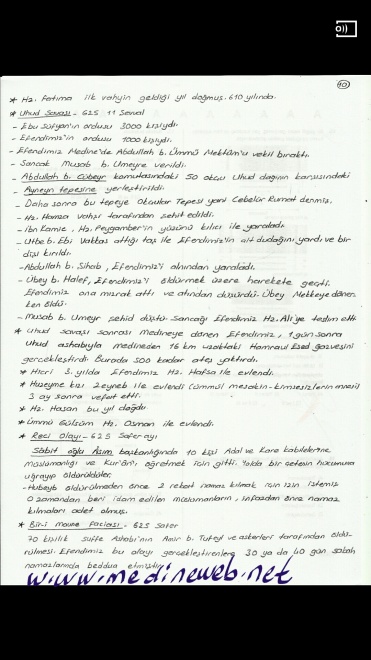 40
* Hz. Fatıma ilk vahyin geldiği yıl doğmuş. 610 yılında.
* Uhud Savaşı - 625 11 Şevval
- Ebu Süfyan'ın ordusu 3000 kişiydi.
- Efendimiz'in ordusu 1000 kişiydi.
- Efendimiz Medine'de Abdullah b. Ümmü Mektûm'u vekil bıraktı.
- Sancak Musab b. Umeyre verildi.
- Abdullah b. Cübeyr komutasındaki 50 okçu Uhud dağının karşısındaki
Ayneyn tepesine yerleştirildi.
- Daha sonra bu tepeye Okçular Tepesi yani Cebelür Rumat denmiş.
- Hz. Hamza Vahşi tarafından şehit edildi.
- İbn Kamie, Hz. Peygamber'in yüzünü kılıcı ile yaraladı.
- Utbe b. Ebi Vakkas attığı taş ile Efendimiz'in alt dudağını yardı ve bir
dişi kırıldı.
- Abdullah b. Şihab, Efendimiz'i alnından yaraladı.
- Übey b. Halef, Efendimiz'i öldürmek üzere harekete geçti.
Efendimiz ona mızrak attı ve atından düşürdü. Übey Mekkeye döner
ken öldü.
- Musab b. Umeyr şehid düştü. Sancağı Efendimiz Hz. Ali'ye teslim etti
* Uhud savaşı sonrası medineye dönen Efendimiz, 1 gün sonra
Uhud ashabıyla medineden 16 km uzaktaki Hamraul Esed gazvesini
gerçekleştirdi. Burada 500 kadar ateş yaktırdı.
* Hicri 3. yılda Efendimiz Hz. Hafsa ile evlendi.
* Huzeyme kızı Zeynep ile evlendi (ümmül mesakin-kimsesizlerin annesi)
3 ay sonra vefat etti.
* Hz. Hasan bu yıl doğdu
* Ümmü Gülsüm Hz. Osman ile evlendi.
* Reci Olayı - 625 Safer ayı
Sabit oğlu Asım başkanlığında 10 kişi Adal ve Kare kabilelerine
müslümanlığı ve Kur'ân'ı öğretmek için gitti. Yolda bir çetenin hücumuna
uğrayıp öldürüldüler.
- Hubeyb öldürülmeden önce 2 rekat namaz kılmak için izin istemiş.
O zamandan beri idam edilen müslümanların, infazdan önce namaz
kılmaları adet olmuş.
* Bi'r-i Maune Faciası - 625 Safer
70 kişilik suffe Ashabı'nın Amir b. Tufeyl ve askerleri tarafından öldü-
rülmesi. Efendimiz bu olayı gerçekleştirenlere 30 ya da 40 gün sabah
namazlarında beddua etmiştir.
www.medineweb.net